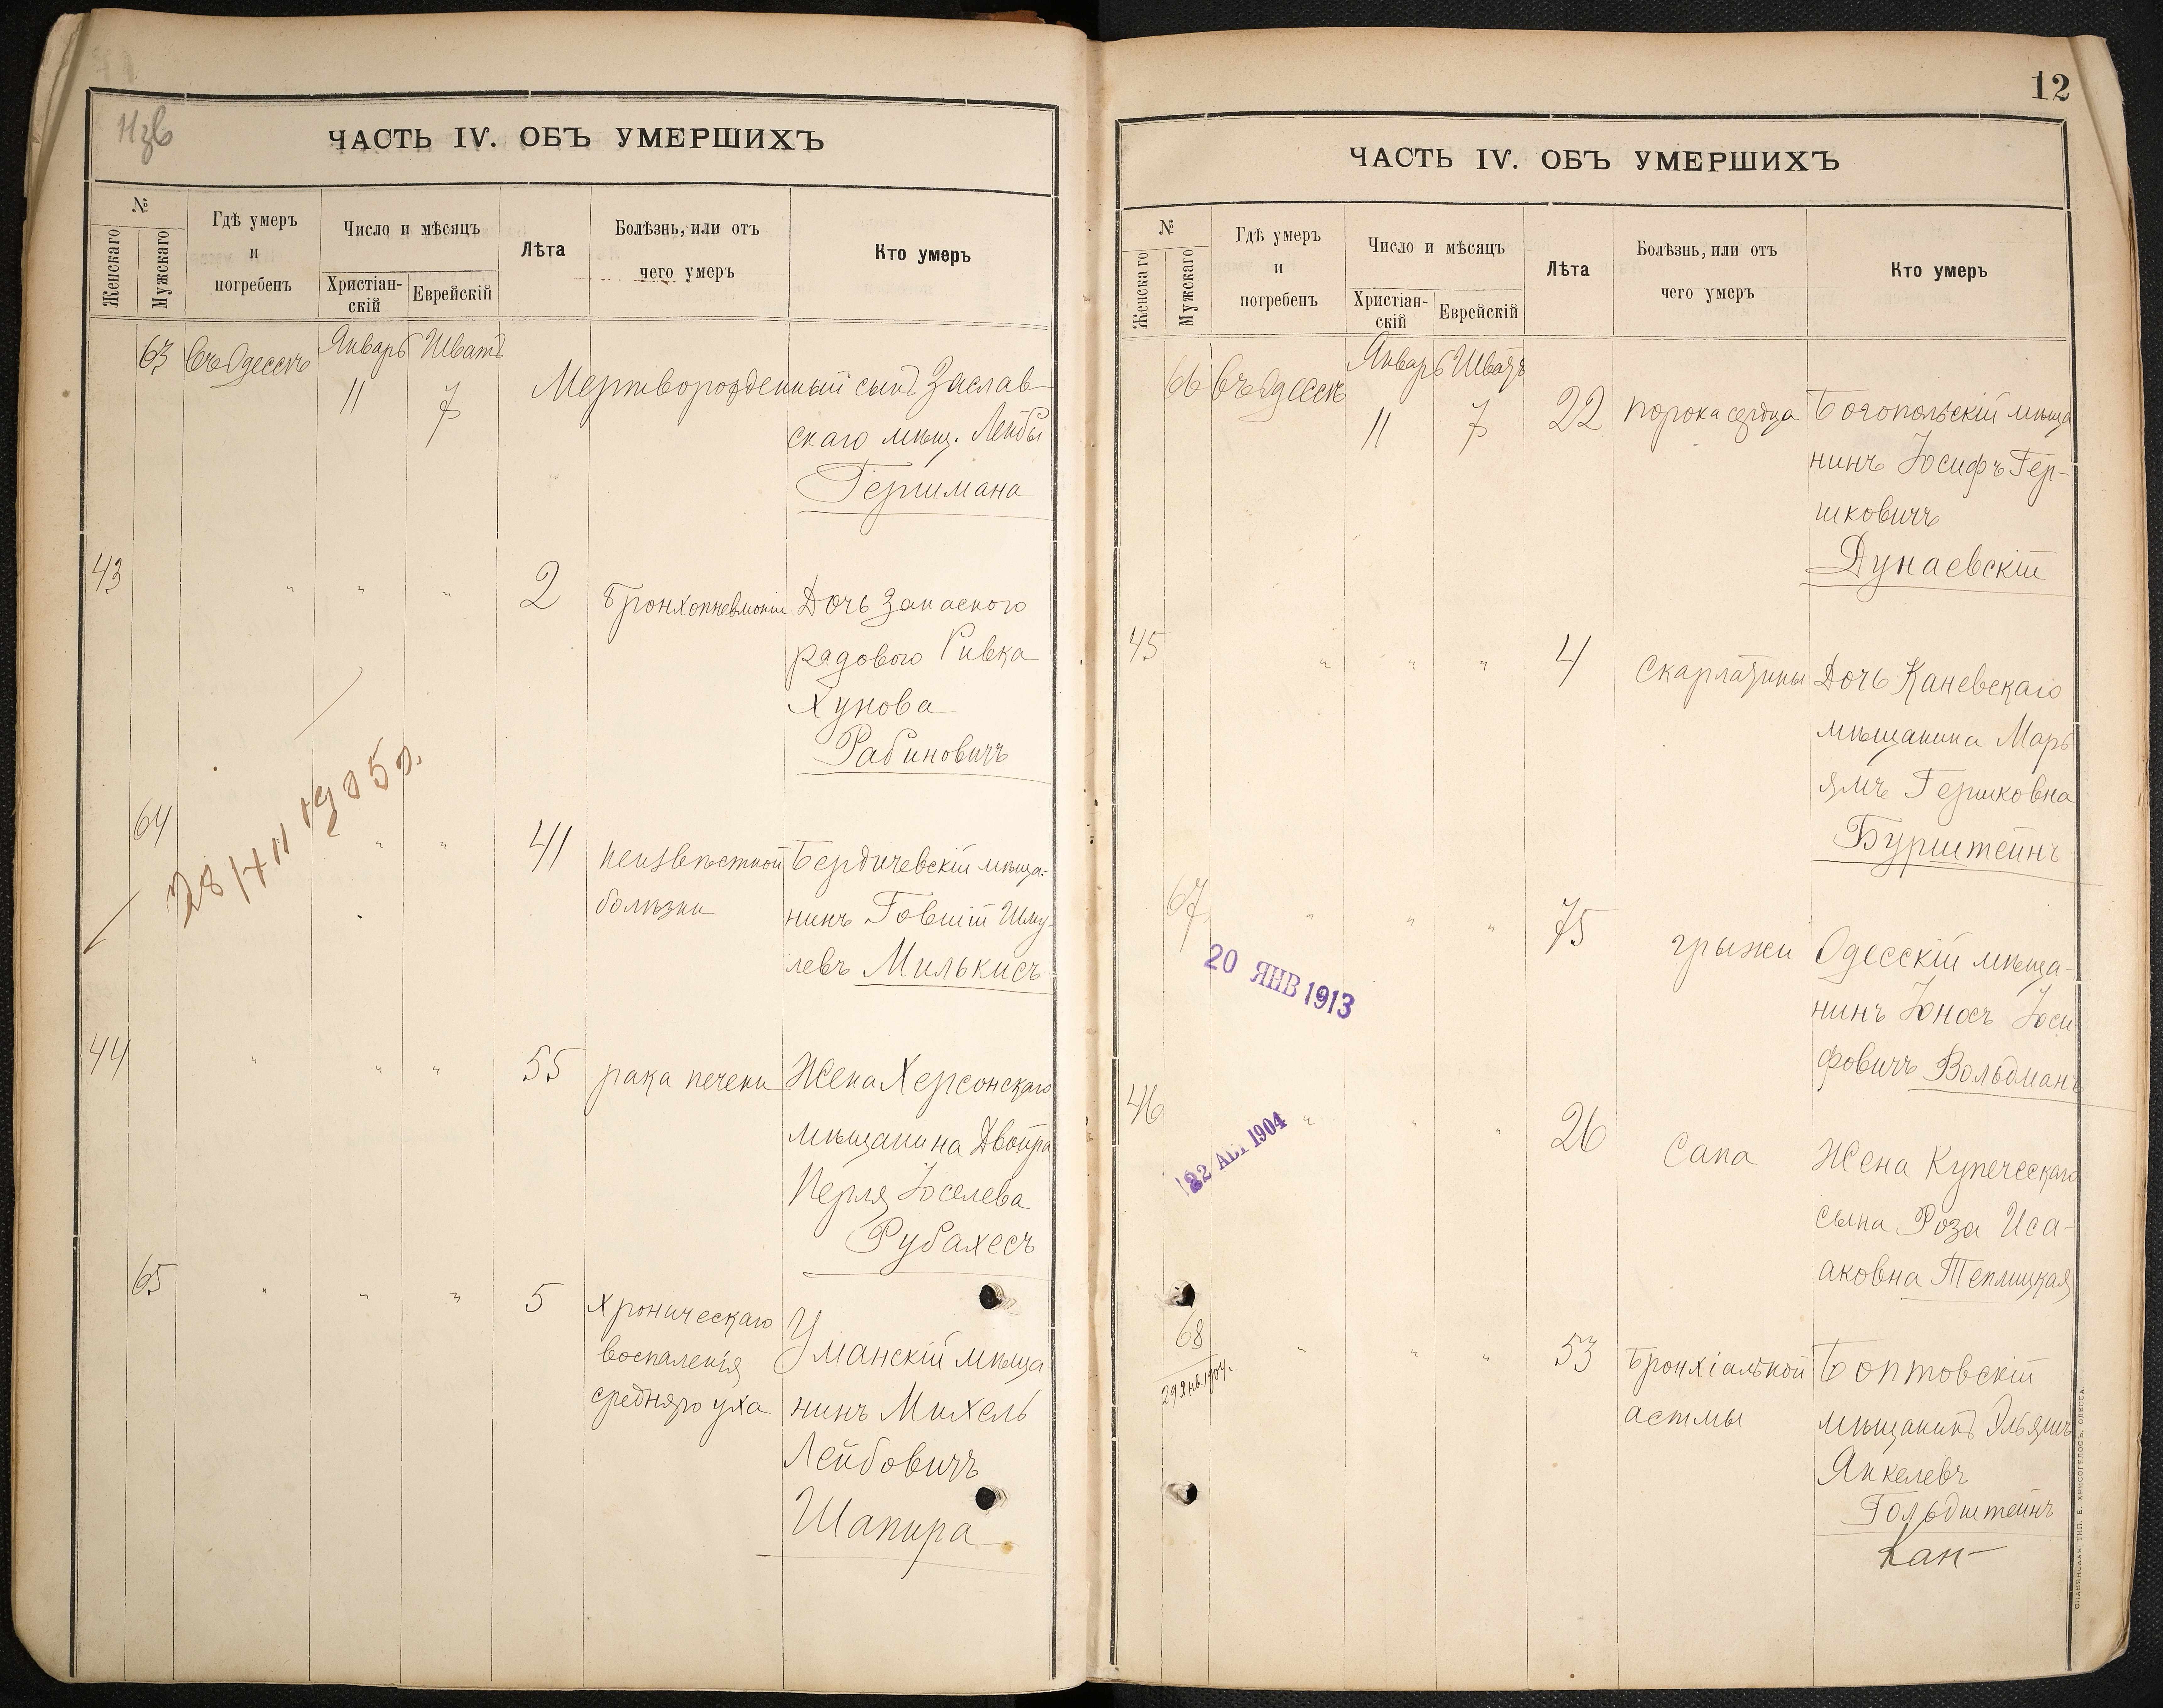 Изв
ЧАСТЬ IV. ОБЪ УМЕРШИХЪ
№
Женскаго
Мужскаго
Гдѣ умеръ
и
погребенъ
Число и мѣсяцъ
Христіан-
скій
Еврейскій
Лѣта
Болѣзнь, или отъ
чего умеръ
Кто умеръ
63 въ Одессѣ Январь Шватъ
11 7 Мертворожденный сынъ Заслав-
скаго мѣщ. Лейбы
Гершмана
43 " " " 2 Бронхопневмоніи Дочь запаснаго
рядового Ривка
Хунова
Рабиновичъ
64 " " 41 неизвѣстной Бердичевскій мѣща-
болѣзни нинъ Говшій Шму-
левъ Милькисъ
1905 г.
44 " " " 55 рака печени Жена Херсонскаго
мѣщанина Двойра
Перля Іоселева
Рубахесъ
65 " " " 5 хроническаго Уманскій мѣща-
воспаленія
средняго уха нинъ Михель
Лейбовичъ
Шапира
12
ЧАСТЬ IV. ОБЪ УМЕРШИХЪ
№
Женскаго
Мужскаго
Гдѣ умеръ
и
погребенъ
Число и мѣсяцъ
Христіан-
скій
Еврейскій
Лѣта
Болѣзнь, или отъ
чего умеръ
Кто умеръ
66 въ Одессѣ Январь Шватъ
11 7 22 порока сердца Богопольскій мѣща
нинъ Іосифъ Гер-
шковичъ
Дунаевскій
45 " " " 4 Скарлатины Дочь Каневскаго
мѣщанина Марь
ямъ Гершковна
Бурштейнъ
67 " " " 75 грыжи Одесскій мѣща-
нинъ Іоносъ Іоси
фовичъ Вольдманъ
20 ЯНВ 1913
46 " " " 26 Сапа Жена Купеческаго
сына Роза Иса-
аковна Теплицкая
22 АВГ 1904
68 " " " 53 Бронхіальной
29 Янв. 1904.
астмы мѣщанинъ Эльяшъ
Янкелевъ
Гольдштейнъ
Кан-
СЛАВЯНСКАЯ ТИП. Е. ХРИСОГЕЛОСЪ, ОДЕССА.